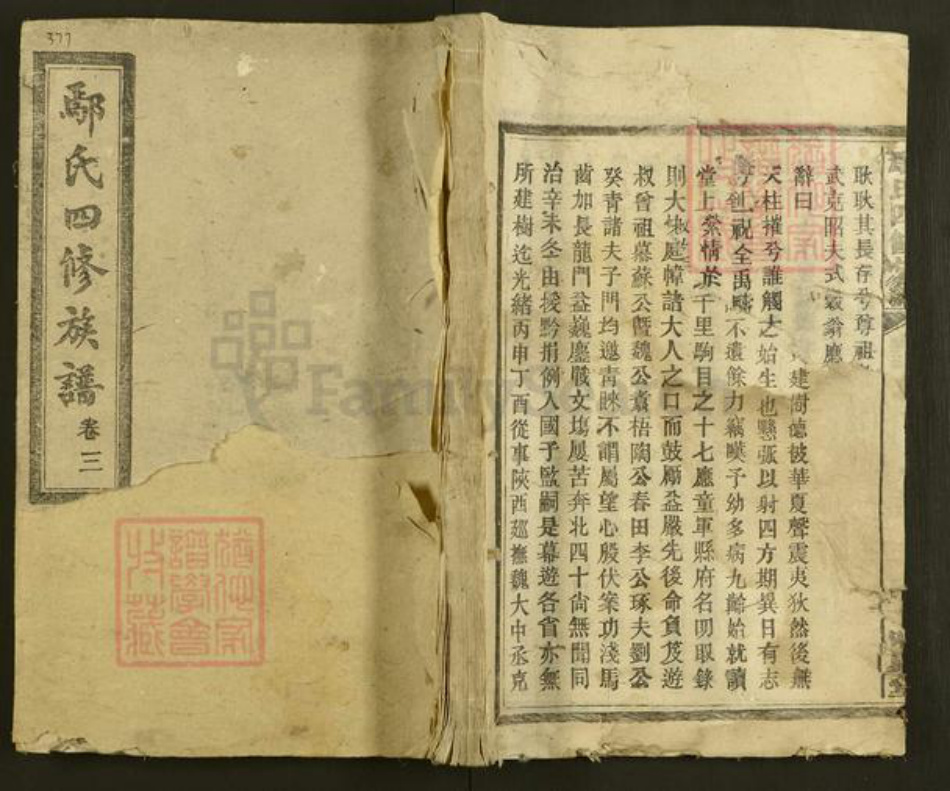 377
鄢氏四修族譜
卷三
耿耿其長存兮尊祖
武克昭夫式穀翁應
辭曰
建樹德被華夏聲震夷狄然後無
天柱摧兮誰觸大之始生也懸弧以射四方期異日有志
祝全禹疇不遺餘力竊嘆予幼多病九齡始就讀
堂上縈情於千里駒目之十七應童軍縣府名叨取錄
則大庭幃諸大人之口而鼓勵益嚴先後命負笈遊
叔曾祖慕蘇公暨魏公翥梧陶公春田李公琢夫劉公
癸青諸夫子門均邀青睞不謂屬望心殷伏案功淺馬
齒加長龍門益巍鏖戰文塲屢苦奔北四十尙無聞同
治辛未冬由援黔捐例入國子監嗣是幕遊各省亦無
所建樹迄光緒丙申丁酉從事陝西廵撫魏大中丞克
Family